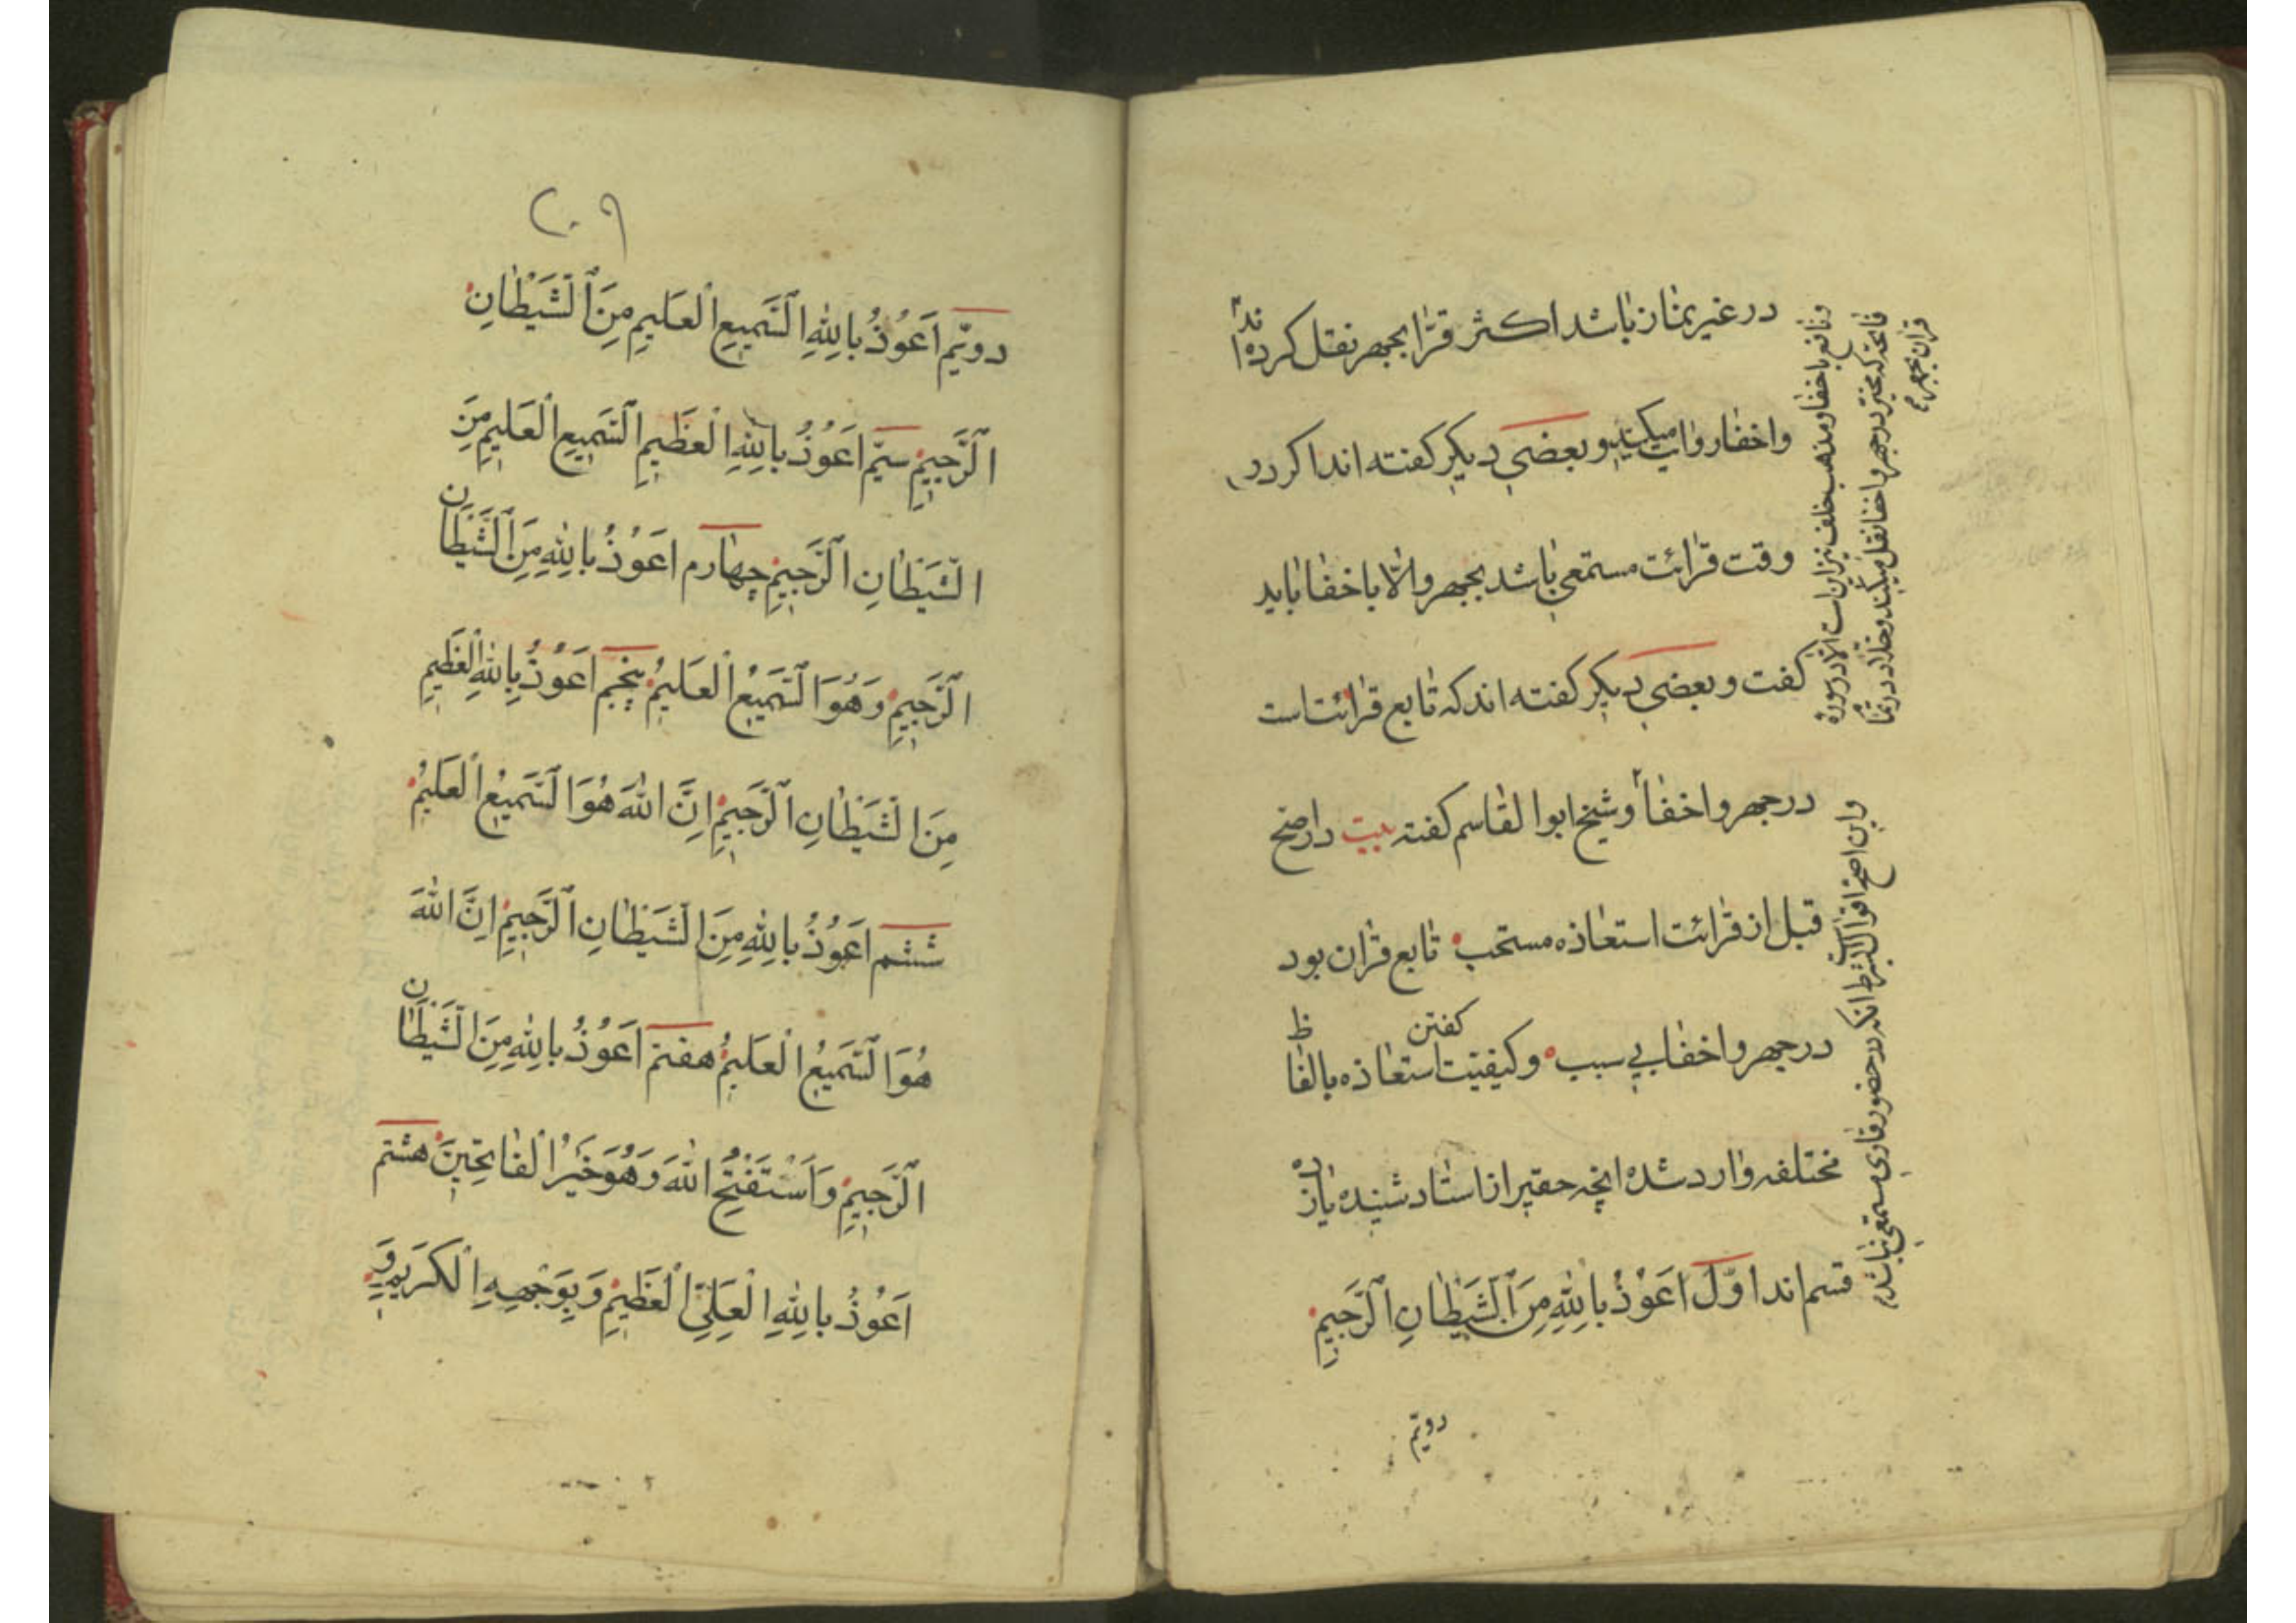 در غیر نماز باشد اکثر قرّا بجهر نقل کرده اند
واخفا روایت میکنند و بعضی دیگر کفته اند اکر در
وقت قرائت مستمعی باشد بجهر والّا باخفا باید
کفت و بعضی دیکر کفته اند که تابع قرائت است
در جهر واخفا و شیخ ابوا القاسم کفته بیت دار صحّ
قبل از قرائت استعاذه مستحب تابع قران بود
در جهر واخفا بی سبب وکیفیّت کفتن استعاذه بالفاظ
مختلفه وارد شده انچه حقیر از استاد شنیده یازده
قسم اند اوّل اَعُوْذُ بِاللّٰهِ مِنَ الشَّیْطَانِ الرَّجِیْمِ
دویّم
ونافع باخفا ومذهب خلف نیز این است الّا در سورهٔ
فاتحه که مخیّر در جهر واخفا نقل میکنند وخلّاد در تما
قران بجهر
واین اصحّ اقوال است بشرط انکه در حضور قاری مستمعی نباشد
۲۰۹
دویّم اَعُوْذُ بِاللّٰهِ السَّمِیْعِ الْعَلِیْمِ مِنَ الشَّیْطَانِ
الرَّجِیْمِ سیّم اَعُوْذُ بِاللّٰهِ الْعَظِیْمِ السَّمِیْعِ الْعَلِیْمِ مِنَ
الشَّیْطَانِ الرَّجِیْمِ چهارم اَعُوْذُ بِاللّٰهِ مِنَ الشَّیْطَانِ
الرَّجِیْمِ وَهُوَ السَّمِیْعُ الْعَلِیْمُ پنجم اَعُوْذُ بِاللّٰهِ الْعَظِیْمِ
مِنَ الشَّیْطَانِ الرَّجِیْمِ اِنَّ اللّٰهَ هُوَ السَّمِیْعُ الْعَلِیْمُ
ششم اَعُوْذُ بِاللّٰهِ مِنَ الشَّیْطَانِ الرَّجِیْمِ اِنَّ اللّٰهَ
هُوَ السَّمِیْعُ الْعَلِیْمُ هفتم اَعُوْذُ بِاللّٰهِ مِنَ الشَّیْطَانِ
الرَّجِیْمِ وَاَسْتَفْتِحُ اللّٰهَ وَهُوَ خَیْرُ الْفَاتِحِیْنَ هشتم
اَعُوْذُ بِاللّٰهِ الْعَلِیِّ الْعَظِیْمِ وَبِوَجْهِهِ الْکَرِیْمِ وَ